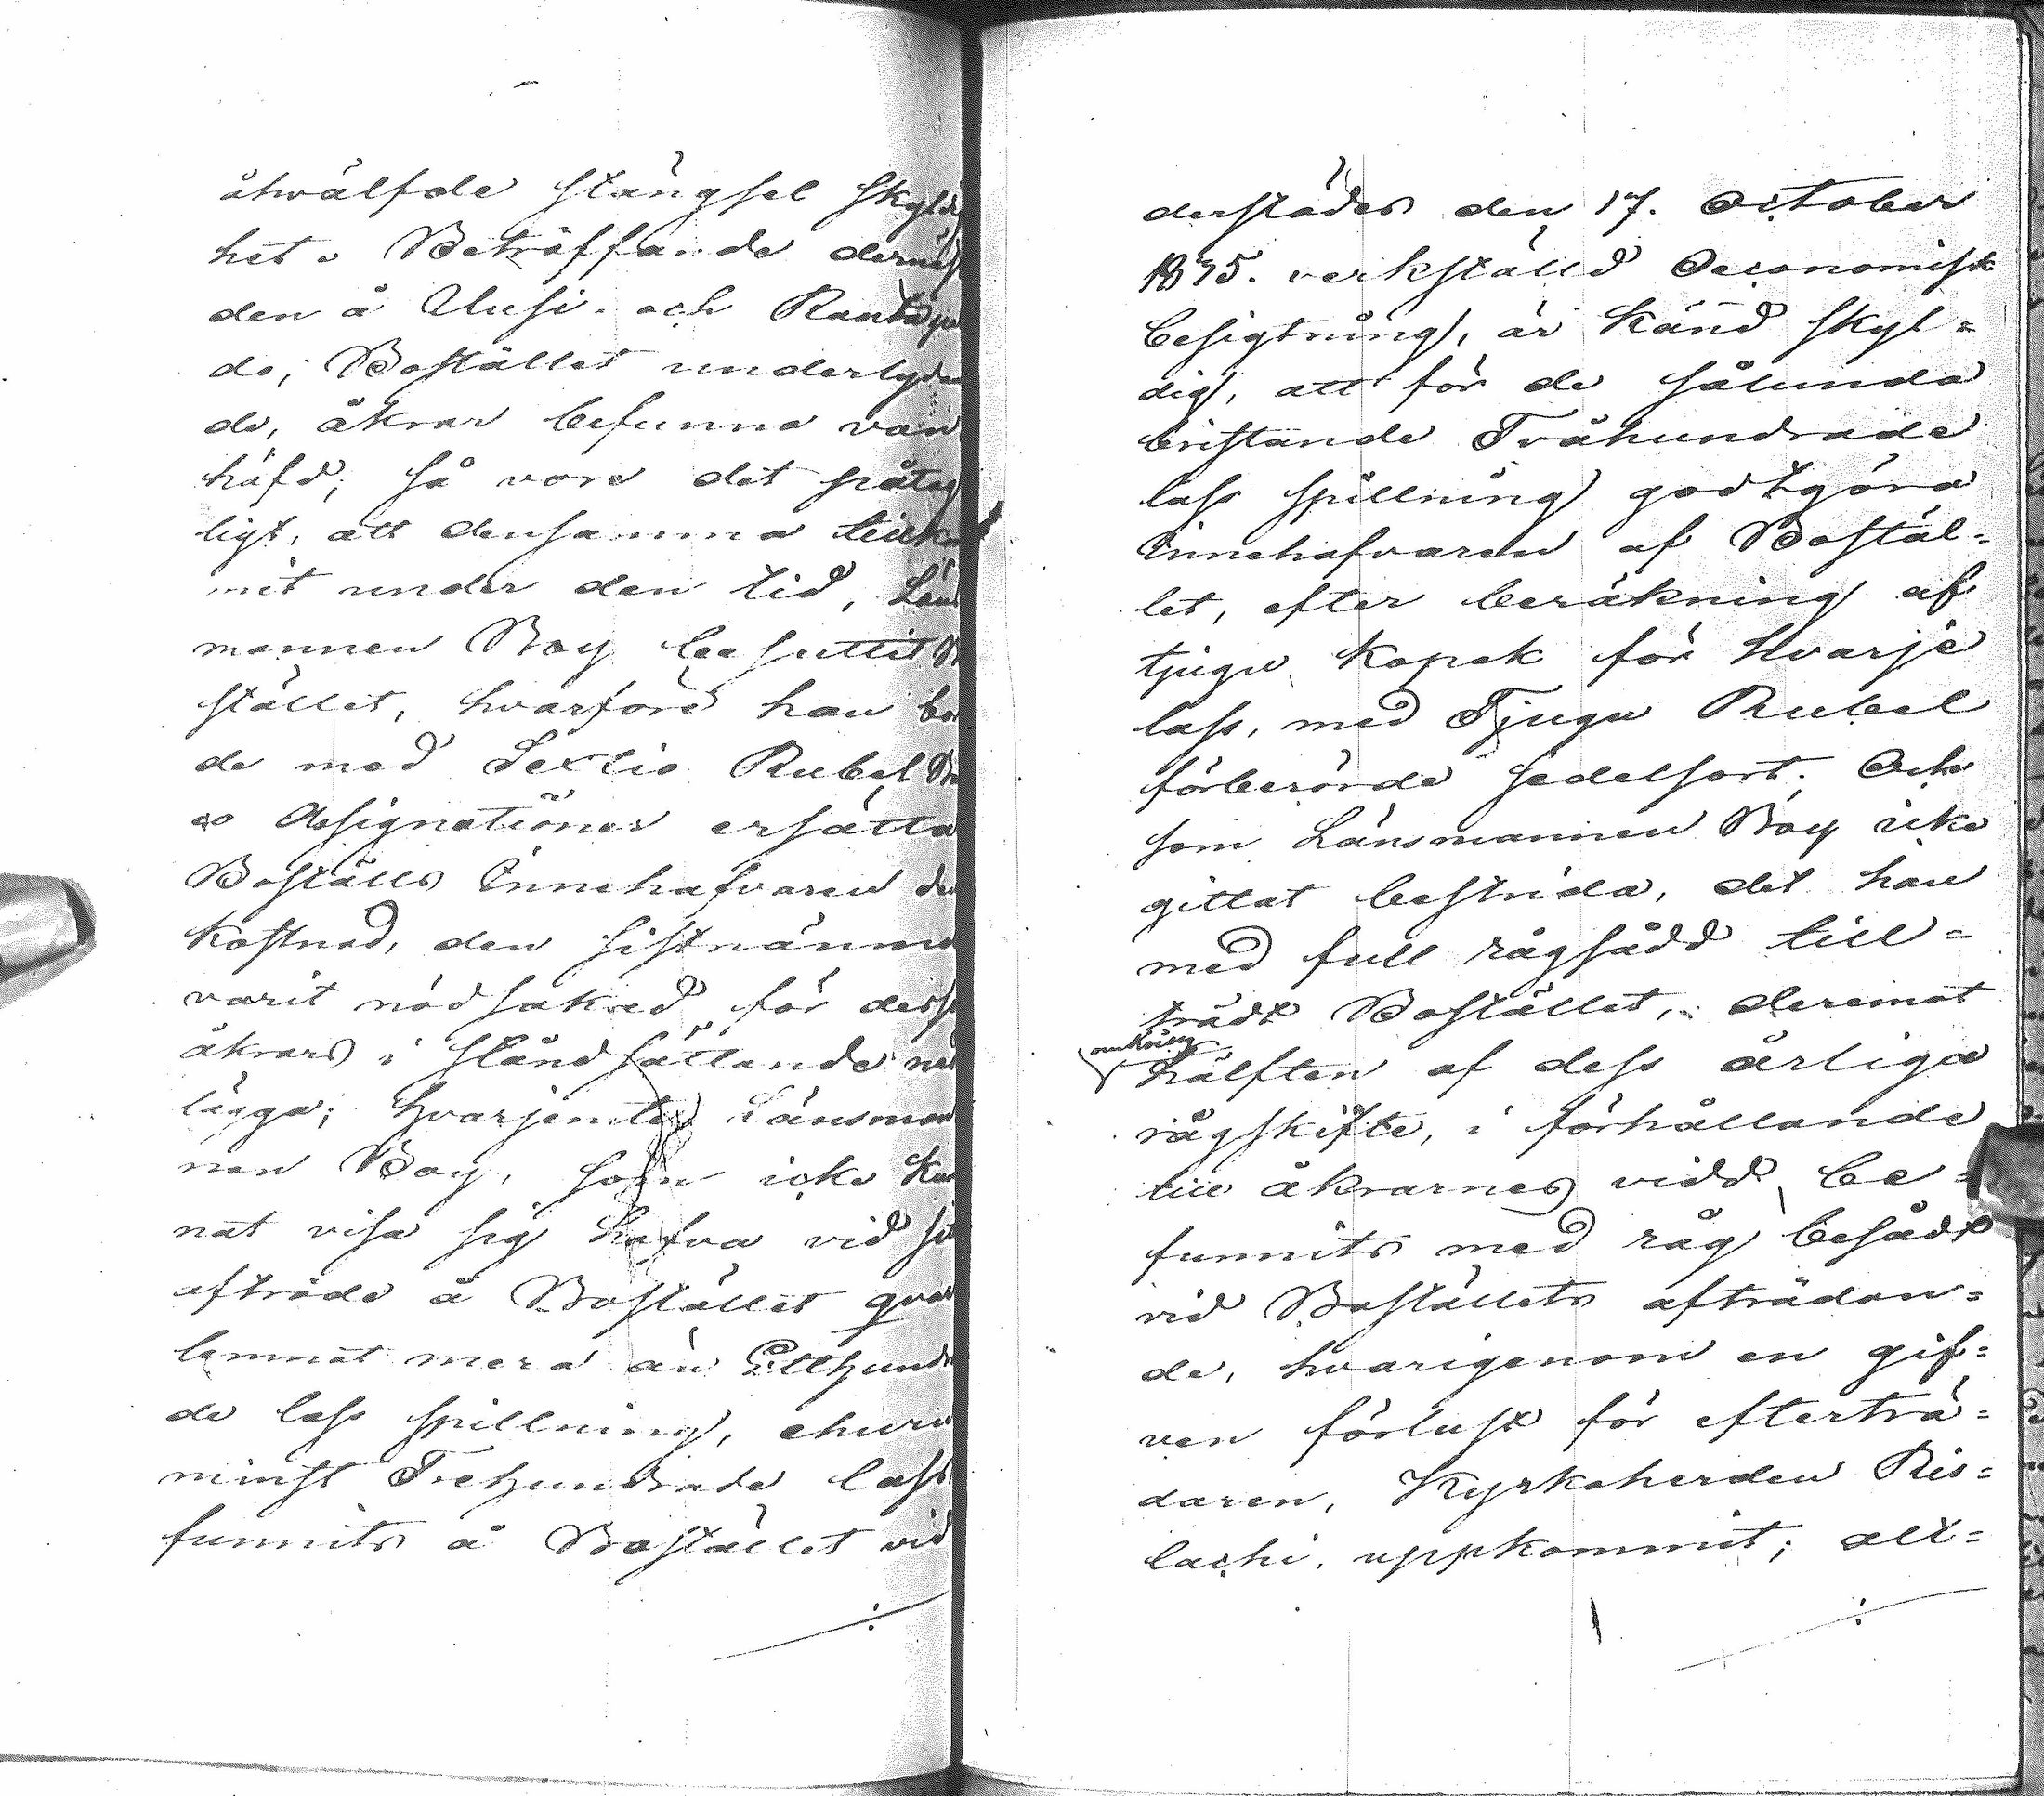 åtwälfde stängsel skyldig
het. Beträffande dernäst
den å Uusi- och
do, Bostället underlydan
de, åkrar befunna van
häfd; så vore det påtag
ligt, att densamma tillkom
mit under den tid, Läns
mannen Boy besuttit Bo
stället, hvarföre han bor
de med Sextio Rubel B:co
Assignationer ersätta
Boställs Innehafvaren den
kostnad, den sistnämnde
varit nödsakad för dessa
åkrars i ståndsättande ned
lägga; hvarjemte Länsman
nen Boy, som icke kun
nat visa sig hafva vid sitt
afträde å Bostället qvar
lemnat mera än Etthundra
de lass spillning, ehuru
minst Trehundrade lass
funnits å Bostället vid
derstädes den 17. October
1875. verkställd Oeconomisk
besigtning, är känd skyl=
dig, att för de sålunda
bristande Tvåhundrade
lass spillning godtgöra
Innehafvaren af Bostäl=
let, efter beräkning af
tjugu kopek för hvarje
lass, med Tjugu Rubel
förberörde sedelsort. Och
som Länsmannen Boy icke
gittat bestrida, det han
med full rågsådd till=
trädt Bostället, deremot
omkring
hälften af dess årliga
rågskifte, i förhållande
till åkrarnes vidd, be=
funnits med råg besådt
vid Boställets afträdan=
de, hvarigenom en gif=
ven förlust för efterträ=
daren, Kyrkoherden Ris=
lachi, uppkommit; alt=